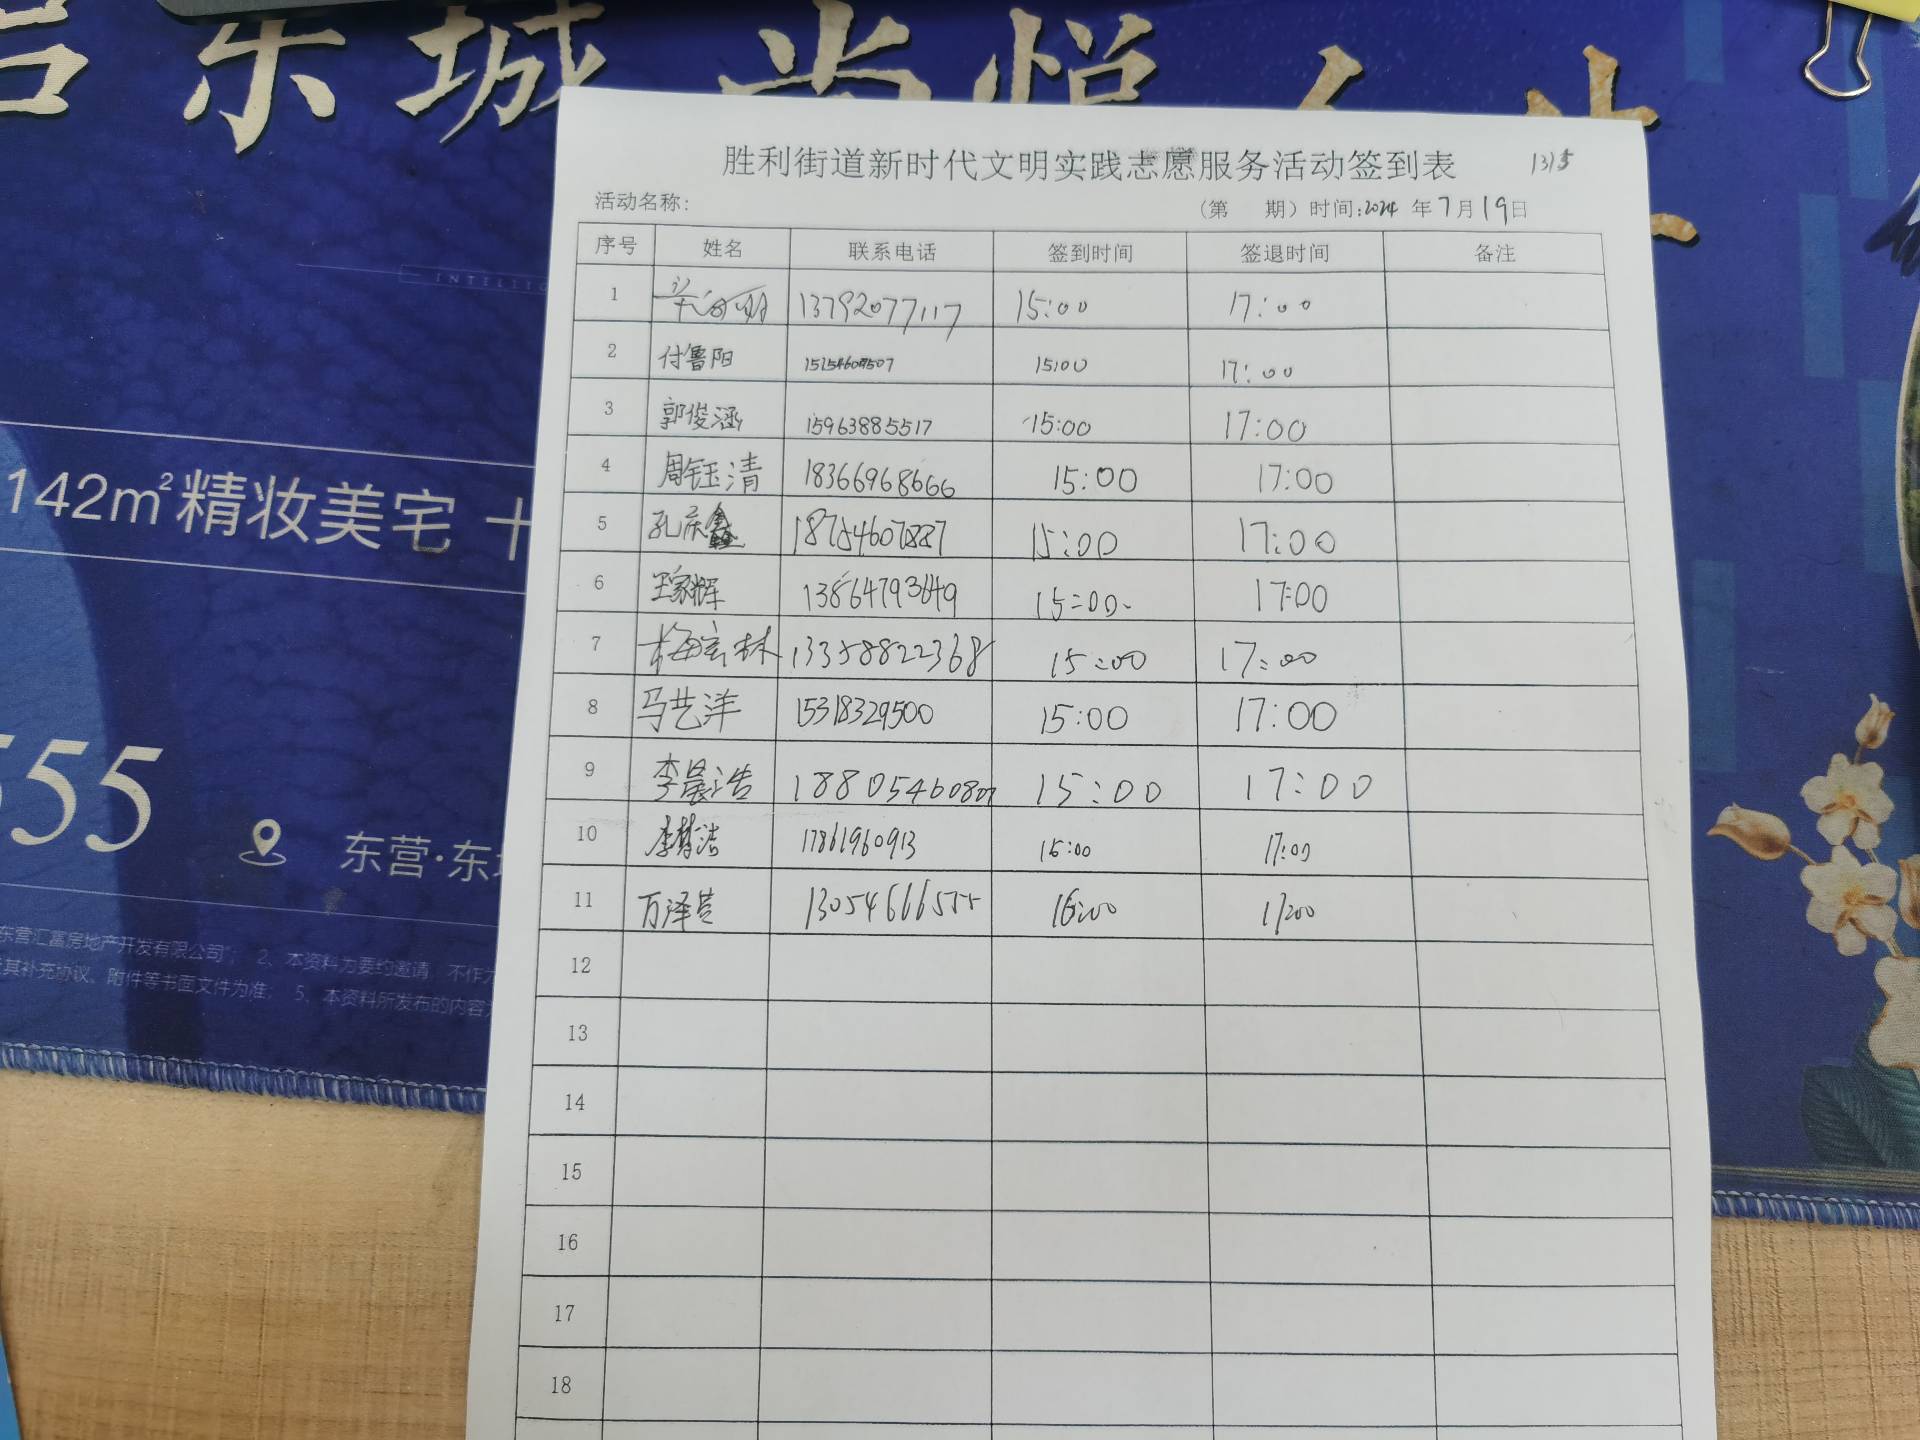 东城尚悦
INTELLIG
142m²精妆美宅 十
555
东营·东
东营汇富房地产开发有限公司"; 2、本资料为要约邀请,不作
其补充协议、附件等书面文件为准; 5、本资料所发布的内容
胜利街道新时代文明实践志愿服务活动签到表
活动名称: (第 期) 时间:2024 年 7 月 19 日
序号 姓名 联系电话 签到时间 签退时间 备注
1 13792077117 15:00 17:00
2 付鲁阳 15:00 17:00
3 郭俊涵 15963885517 15:00 17:00
4 周钰清 18366968666 15:00 17:00
5 孔庆鑫 18754607887 15:00 17:00
6 王家辉 13864793649 15:00 17:00
7 梅宏林 13358822368 15:00 17:00
8 马艺洋 15318329500 15:00 17:00
9 李晨浩 15:00 17:00
10 17861960913 15:00 17:00
11 万泽萱 13054666555 17:00
12
13
14
15
16
17
18